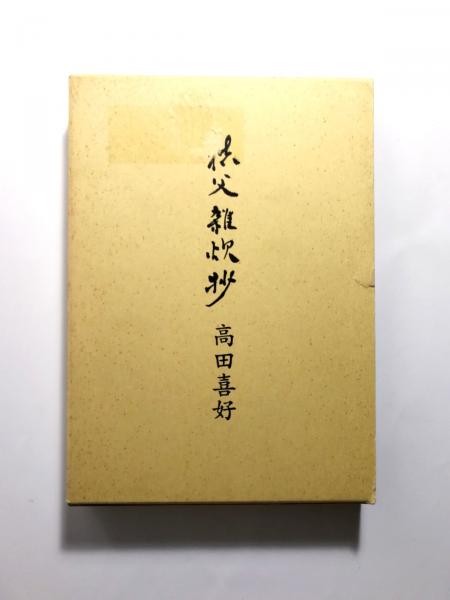 秩父雑炊抄
高田喜好